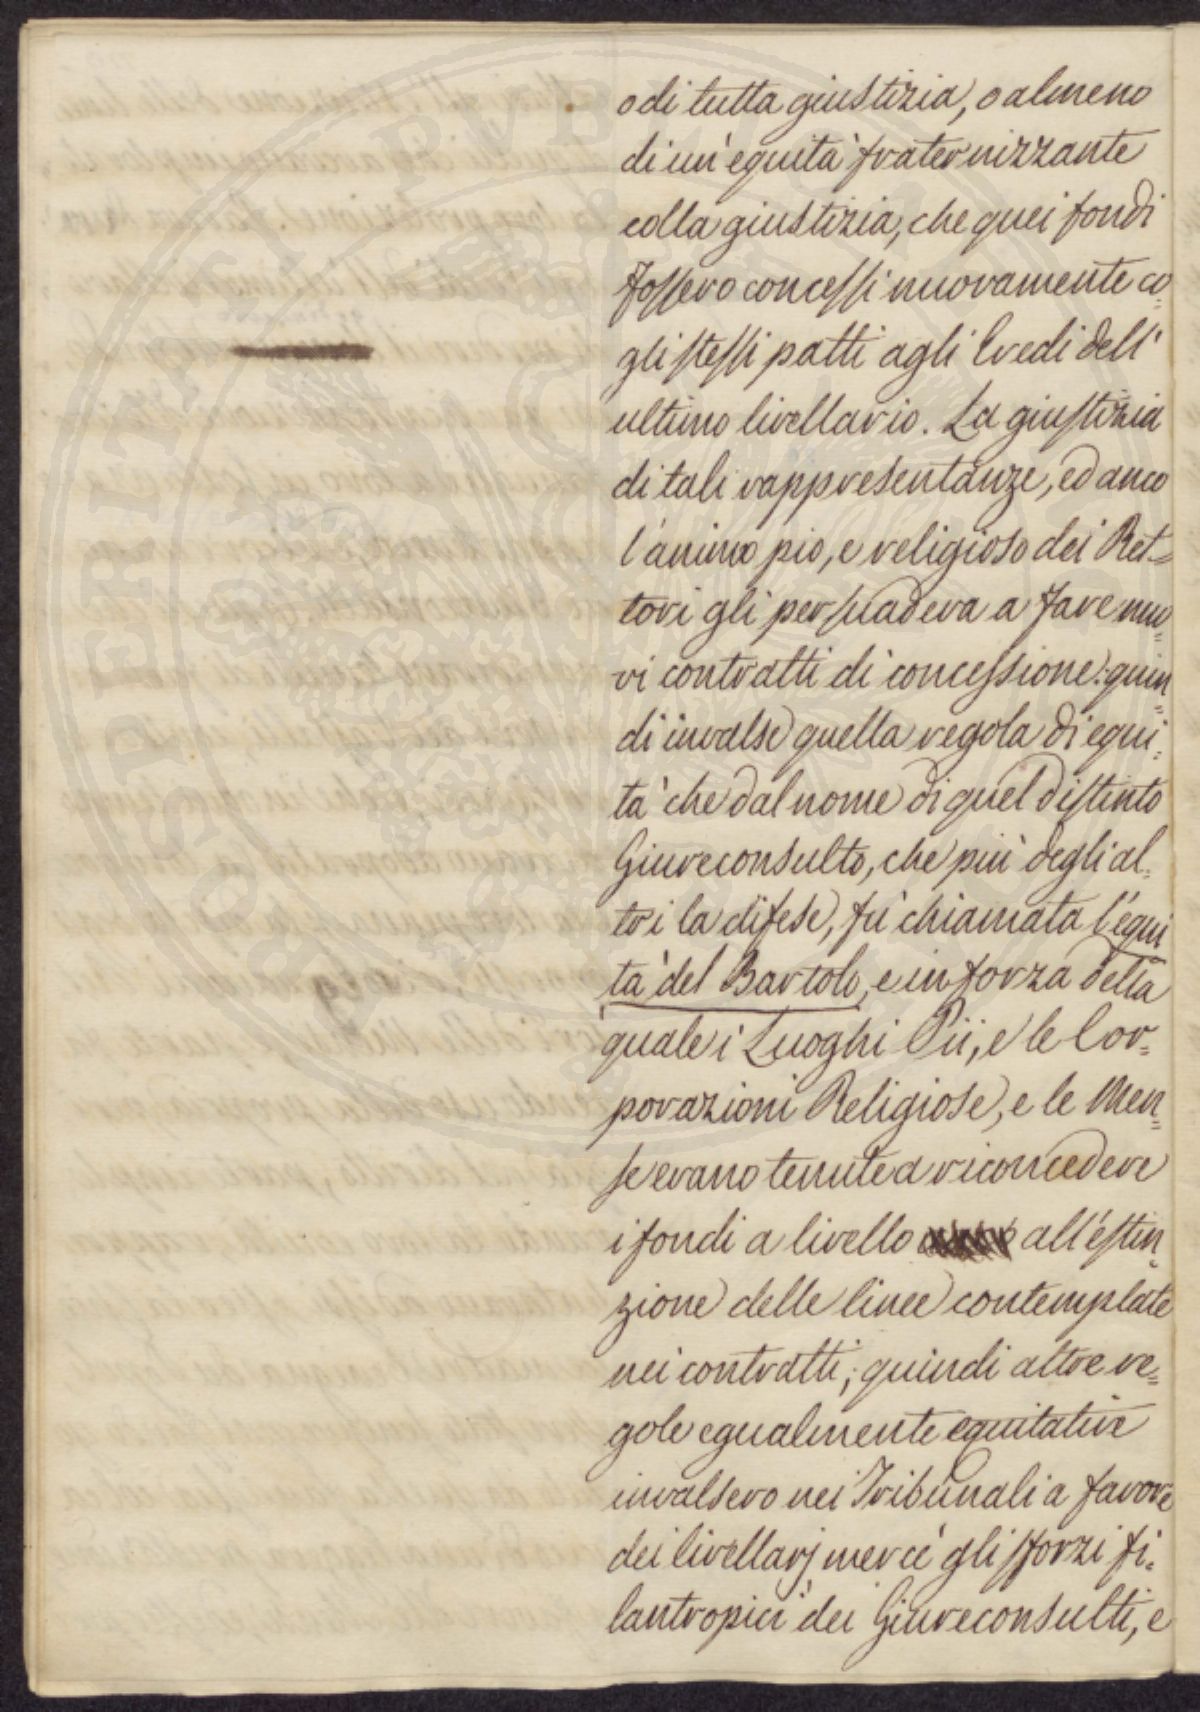 o di tutta giustizia, o almeno
di un'equità fraternizzante
colla giustizia, che quei fondi
fossero concessi nuovamente co=
gli stessi patti agli Eredi dell'
ultimo livellario. La giustizia
di tali rappresentanze, ed anco
l'animo pio, e religioso dei Ret=
tori gli persuadeva a fare nuo=
vi contratti di concessione: quin=
di invalse quella regola di equi=
tà che dal nome di quel distinto
Giureconsulto, che più degli al=
tri la difese, fù chiamata l'equi
tà del Bartolo, e in forza della
quale i Luoghi Pii, e le Cor=
porazioni Religiose, e le Men=
se erano tenute a riconcedere
i fondi a livello all'estin=
zione delle linee contemplate
nei contratti; quindi altre re=
gole egualmente equitative
invalsero nei Tribunali a favore
dei livellarj mercè gli sforzi fi=
lantropici dei Giureconsulti, e
PROSPERITATI PVBL